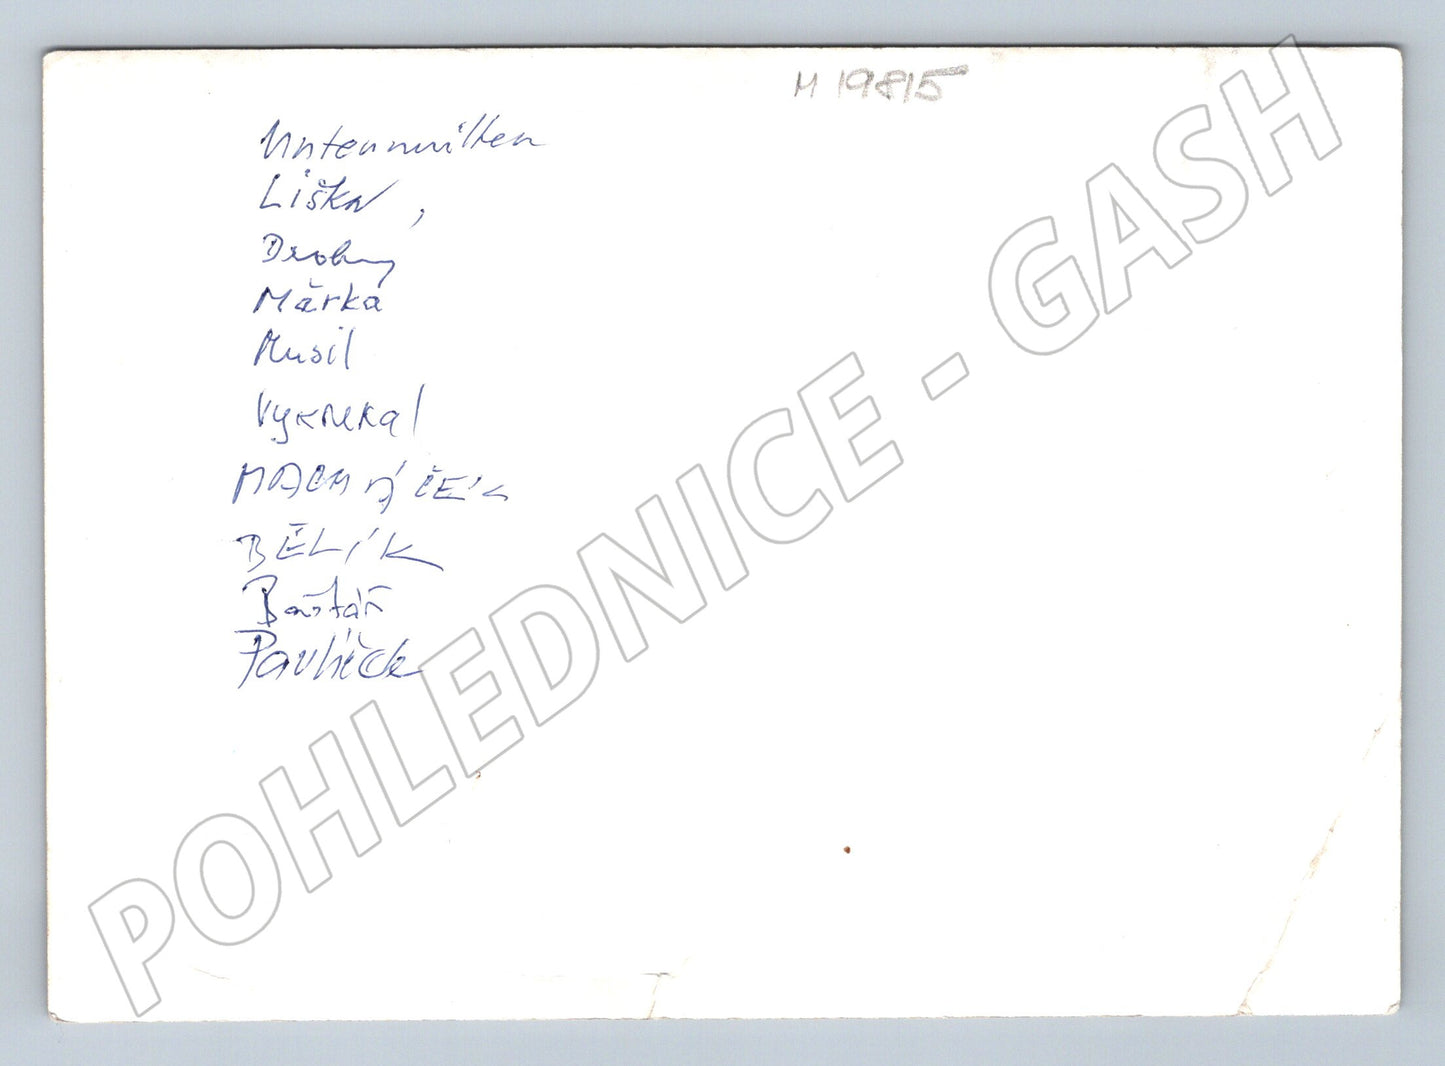 M 19815
Liška,
Drobný
Márka
Musil
Vykrekal
MACHÁČEK
BĚLÍK
Baštář
Pavlíček
POHLEDNICE - GASH